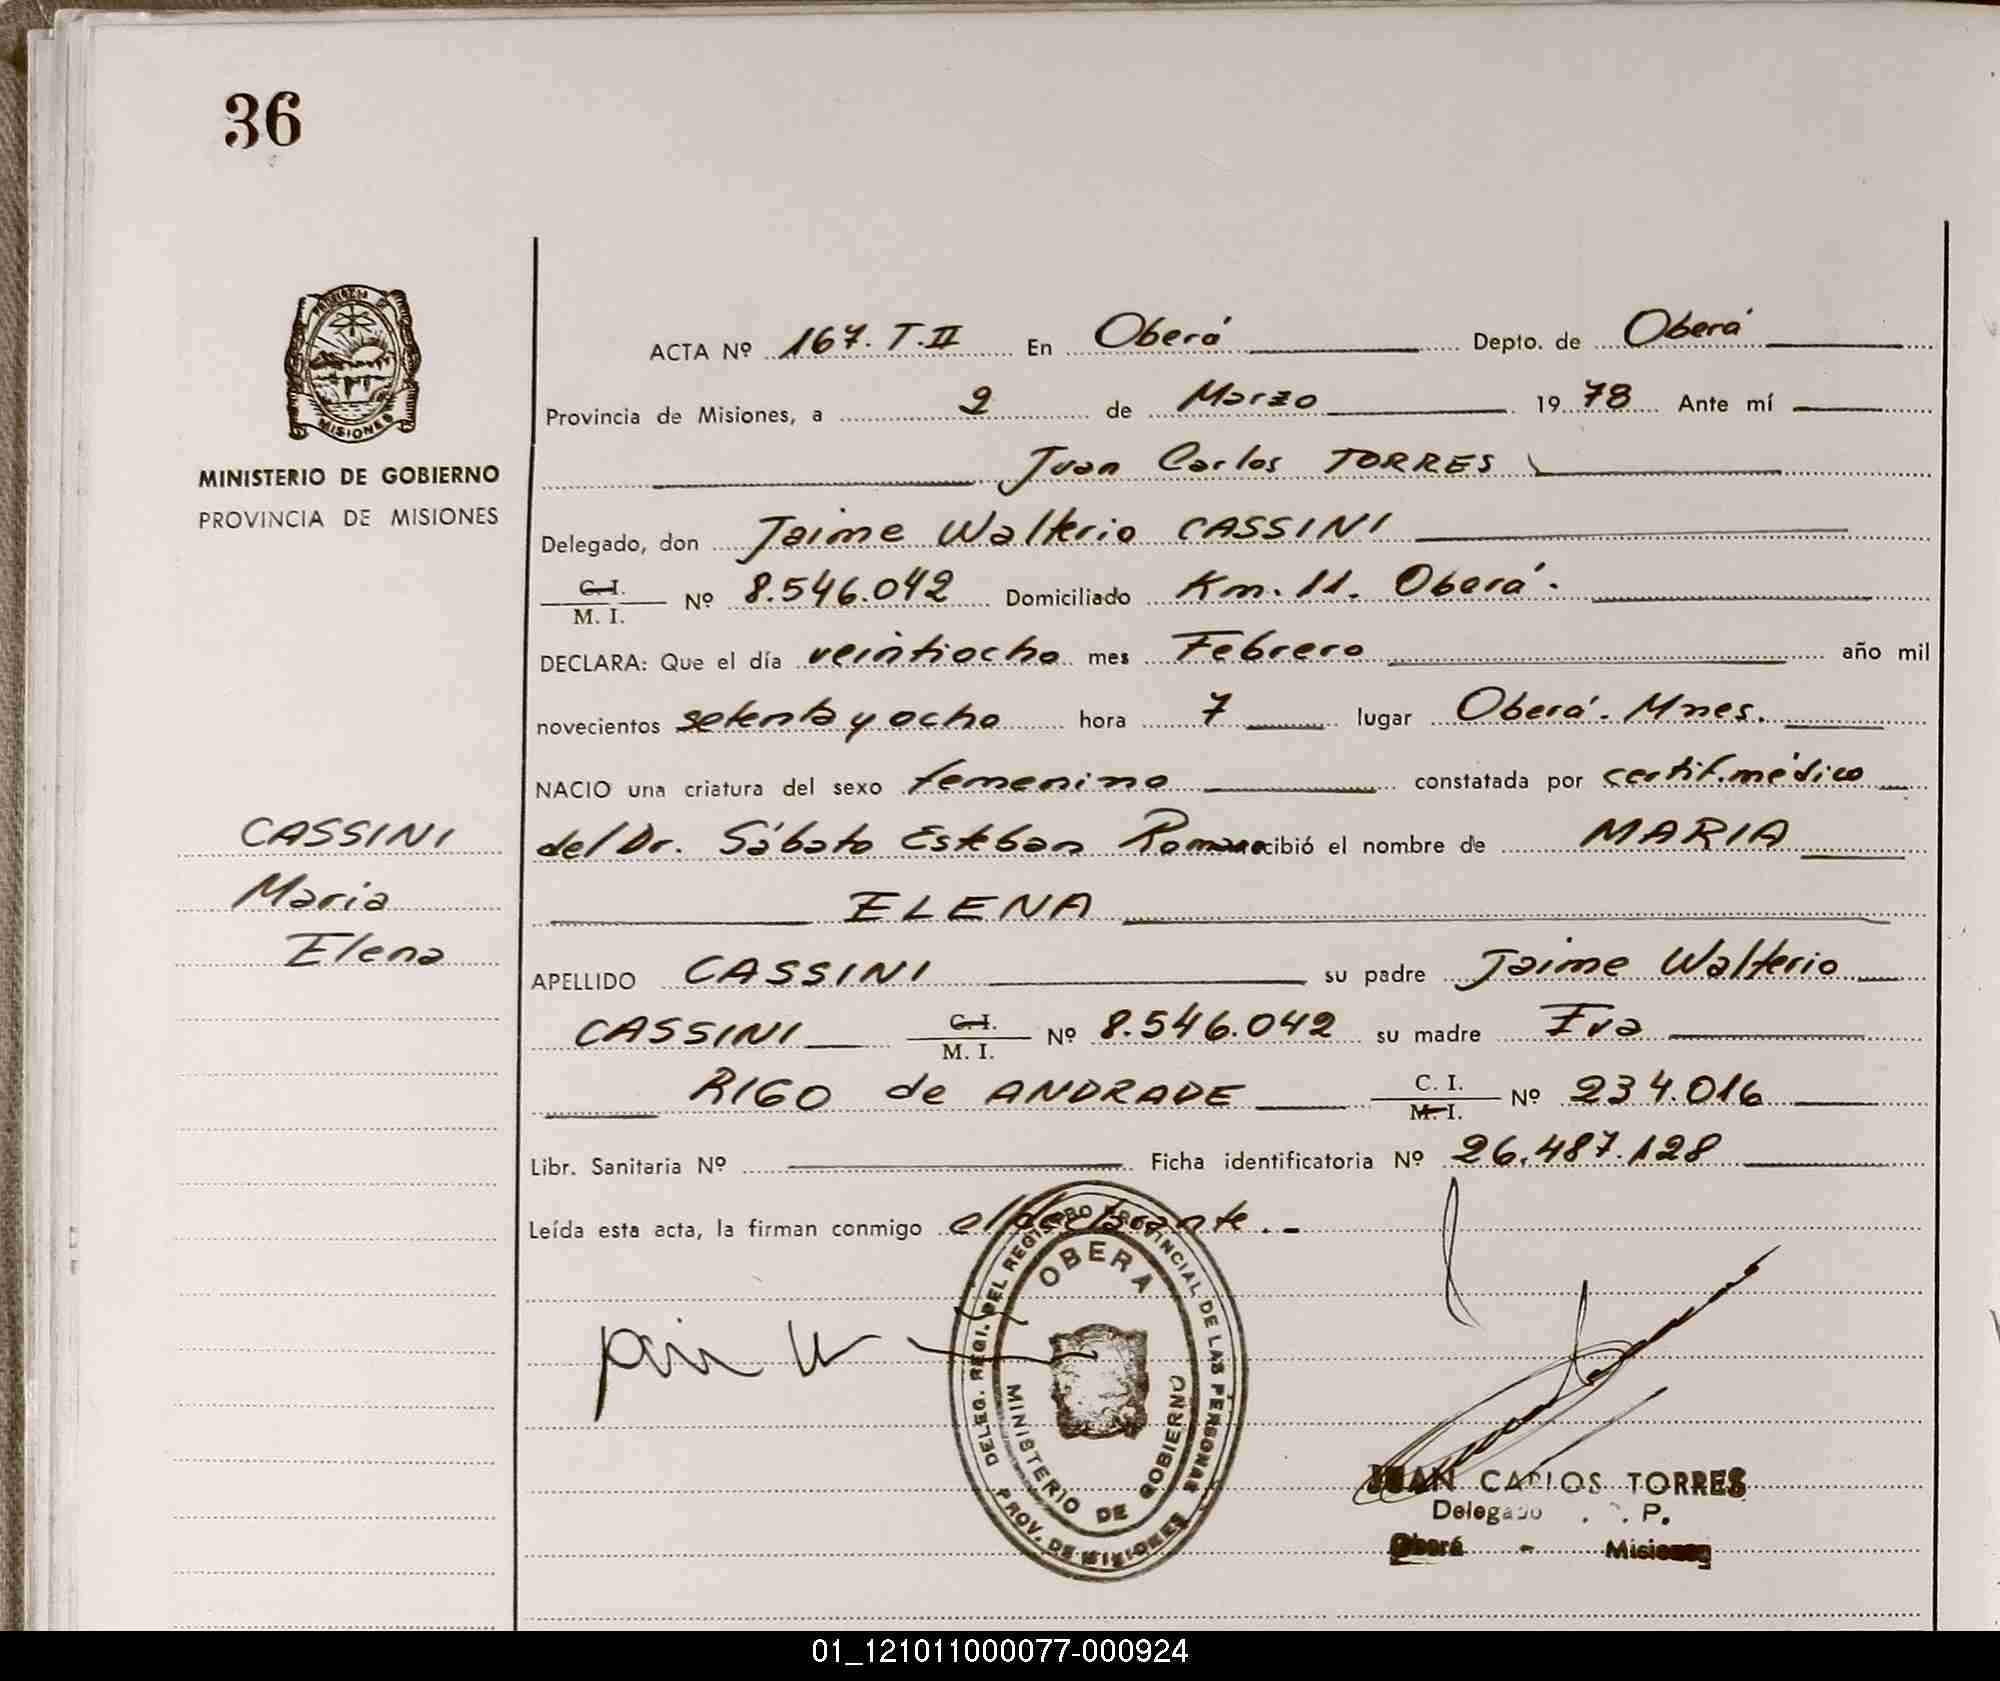 36
PROVINCIA DE
MISIONES
MINISTERIO DE GOBIERNO
PROVINCIA DE MISIONES
CASSINI
Maria
Elena
ACTA Nº 167. T.II En Oberá Depto. de Oberá
Provincia de Misiones, a 2 de Marzo 1978 Ante mí
Juan Carlos TORRES
Delegado, don Jaime Walterio CASSINI
C.I.
M. I. Nº 8.546.042 Domiciliado Km. 11. Oberá.
DECLARA: Que el día veintiocho mes Febrero año mil
novecientos setenta y ocho hora 7 lugar Oberá. Mnes.
NACIO una criatura del sexo femenino constatada por certif. médico
del Dr. Sábato Esteban Romano cibió el nombre de MARIA
ELENA
APELLIDO CASSINI su padre Jaime Walterio
CASSINI C.I. M. I. Nº 8.546.042 su madre Eva
RIGO de ANDRADE C. I. M.I. Nº 234.016
Libr. Sanitaria Nº Ficha identificatoria Nº 26.487.128
Leída esta acta, la firman conmigo el declarante.-
DELEG. REGI. DEL REGISTRO PROVINCIAL DE LAS PERSONAS
OBERA
MINISTERIO DE GOBIERNO
PROV. DE MISIONES
JUAN CARLOS TORRES
Delegado P.
Oberá - Misiones
01_121011000077-000924